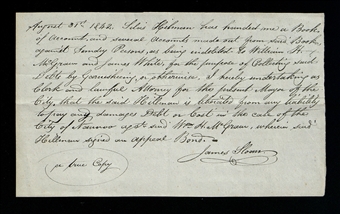 August 31st 1842. Silas Hillman has handed me a Book
of Account, and several accounts made out from said Book
against Sundry Persons, as being indebted to William H.
McGraw and James White, for the purpose of Collecting said
Debt by Garnisheeing, or otherwise, I hereby undertaking as
Clerk and lawful Attorney for the present Mayor of the
City, that the said Hillman is from any liability
to pay any damages Debt or Cost in the case of the
City of Nauvoo agst. said Wm Graw, wherein said
Hillman signed an Appeal Bond.
James Sloan
(a true Copy)